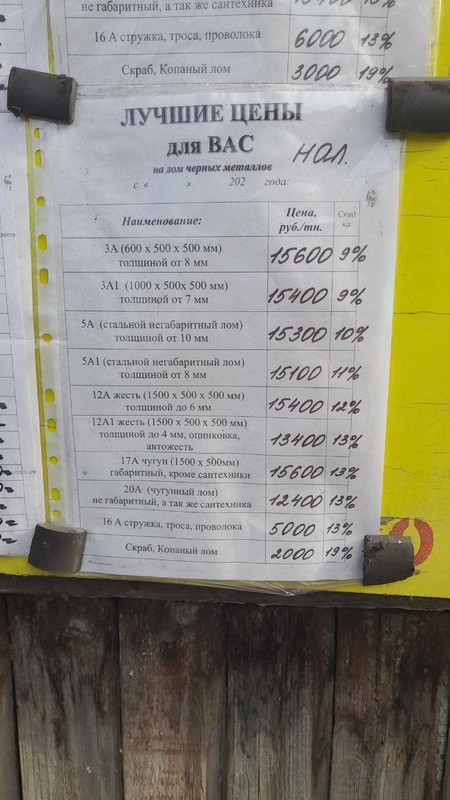 не габаритный, а так же сантехника
16 А стружка, троса, проволока 6000 13%
Скраб, Копаный лом 3000 19%
ЛУЧШИЕ ЦЕНЫ
для ВАС
нал.
на лом черных металлов
с « » 202 года:
Наименование: Цена, руб./тн. Скид ка
3А (600 х 500 х 500 мм)
толщиной от 8 мм 15600 9%
3А1 (1000 х 500х 500 мм)
толщиной от 7 мм 15400 9%
5А (стальной негабаритный лом)
толщиной от 10 мм 15300 10%
5А1 (стальной негабаритный лом)
толщиной от 8 мм 15100 11%
12А жесть (1500 х 500 х 500 мм)
толщиной до 6 мм 15400 12%
12А1 жесть (1500 х 500 х 500 мм)
толщиной до 4 мм, оцинковка,
автожесть 13400 13%
17А чугун (1500 х 500мм)
габаритный, кроме сантехники 15600 13%
20А (чугунный лом)
не габаритный, а так же сантехника 12400 13%
16 А стружка, троса, проволока 5000 13%
Скраб, Копаный лом 2000 19%